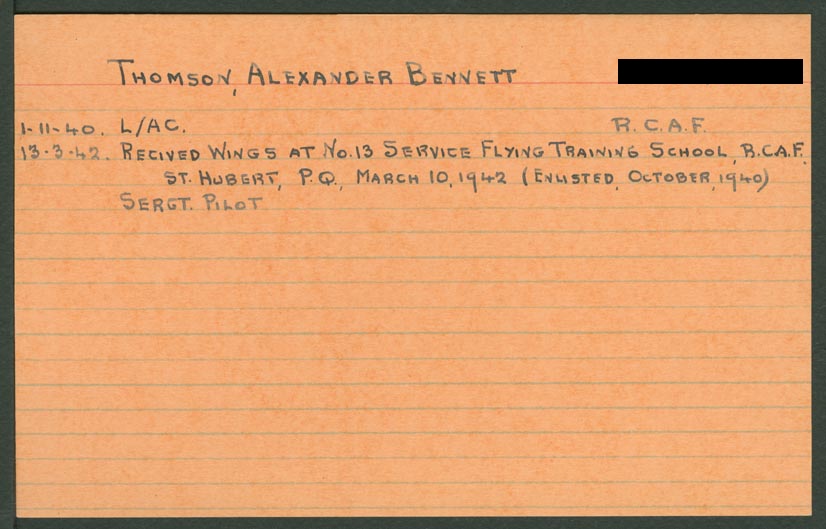 THOMSON, ALEXANDER BENNETT
1-11-40. L/AC. R.C.A.F.
13-3-42. RECIVED WINGS AT NO.13 SERVICE FLYING TRAINING SCHOOL, R.C.A.F.
ST. HUBERT, P.Q., MARCH 10, 1942 (ENLISTED, OCTOBER, 1940)
SERGT. PILOT